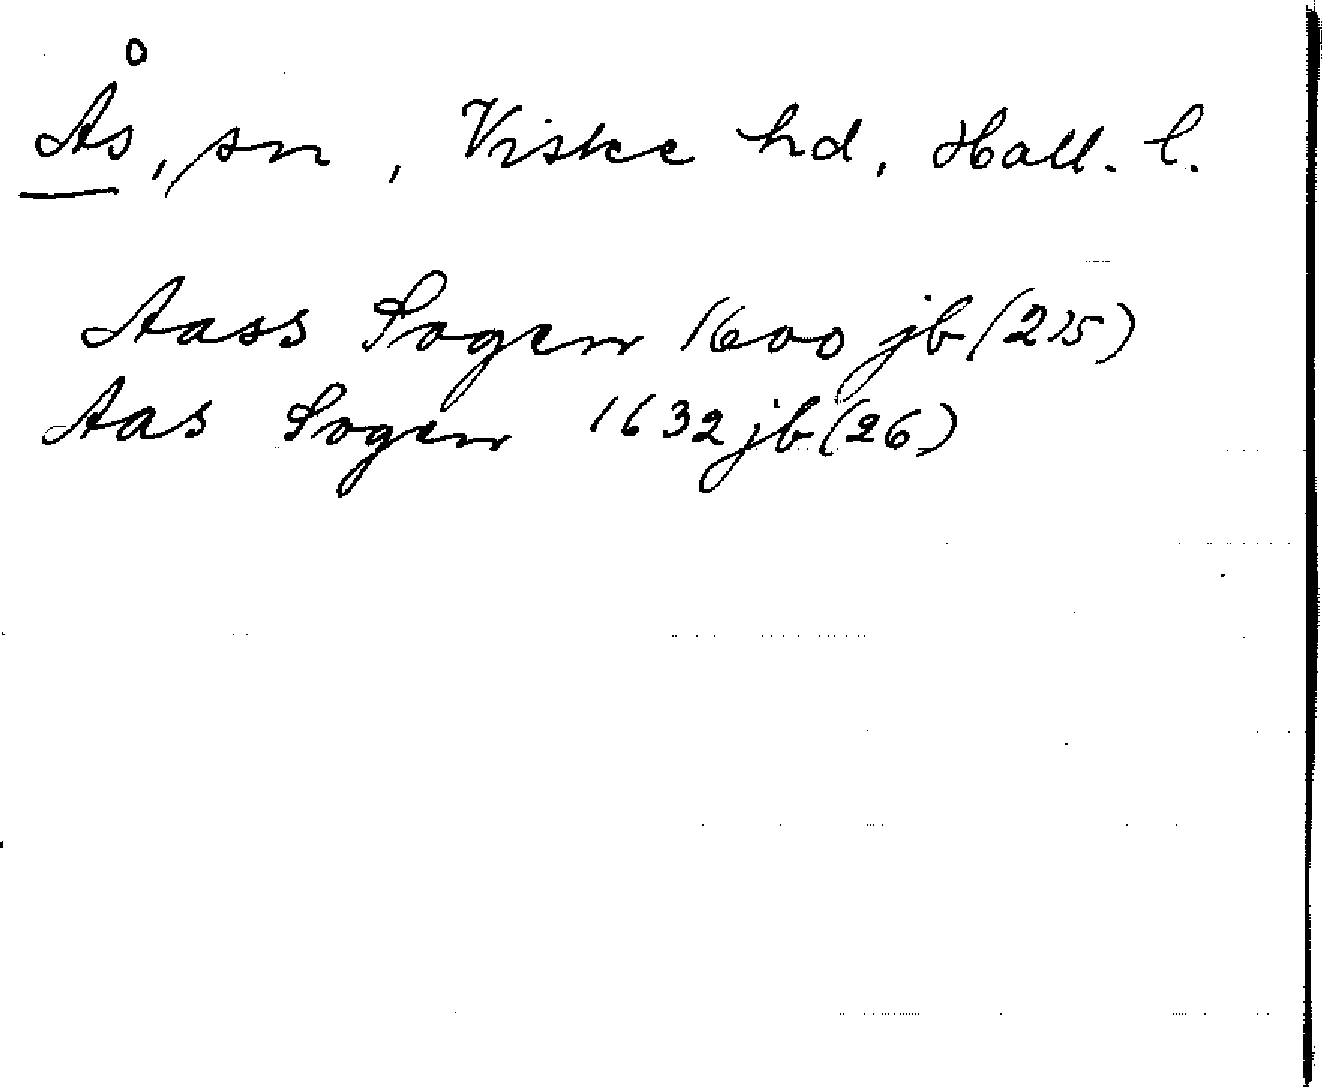 Ås, sn, Viske hd, Hall. l.
Aass Sogen 1600 jb (215)
Aas Sogen 1632 jb (26)